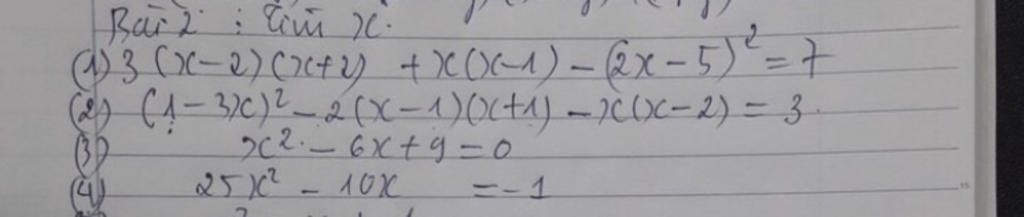 Bài 2 : Tìm x.
(1) 3(x-2)(x+2) + x(x-1) - (2x-5)² = 7
(2) (1-3x)² - 2(x-1)(x+1) - x(x-2) = 3.
(3) x² - 6x + 9 = 0
(4) 25x² - 10x = -1